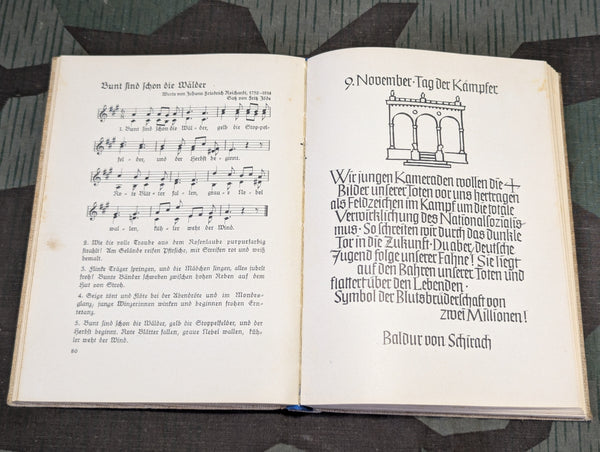 Bunt sind schon die Wälder
Weise von Johann Friedrich Reichardt, 1752–1814
Satz von Fritz Jöde
1. Bunt sind schon die Wäl - der, gelb die Stoppel-
fel - der, und der Herbst be - ginnt.
Ro - te Blät - ter fal - len, grau - e Ne - bel
wal - len, küh - ler weht der Wind.
2. Wie die volle Traube aus dem Rebenlaube purpurfarbig
strahlt! Am Gelände reifen Pfirsiche, mit Streifen rot und weiß
bemalt.
3. Flinke Träger springen, und die Mädchen singen, alles jubelt
froh! Bunte Bänder schweben zwischen hohen Reben auf dem
Hut von Stroh.
4. Geige tönt und Flöte bei der Abendröte und im Mondes-
glanz; junge Winzerinnen winken und beginnen frohen Ern-
tetanz.
5. Bunt sind schon die Wälder, gelb die Stoppelfelder, und der
Herbst beginnt. Rote Blätter fallen, graue Nebel wallen, küh-
ler weht der Wind.
80
9. November · Tag der Kämpfer
Wir jungen Kameraden wollen die
Bilder unserer Toten vor uns hertragen
als Feldzeichen im Kampf um die totale
Verwirklichung des Nationalsozialis-
mus · So schreiten wir durch das dunkle
Tor in die Zukunft · Du aber, deutsche
Jugend folge unserer Fahne! Sie liegt
auf den Bahren unserer Toten und
flattert über den Lebenden ·
Symbol der Blutsbrüderschaft von
zwei Millionen!
Baldur von Schirach